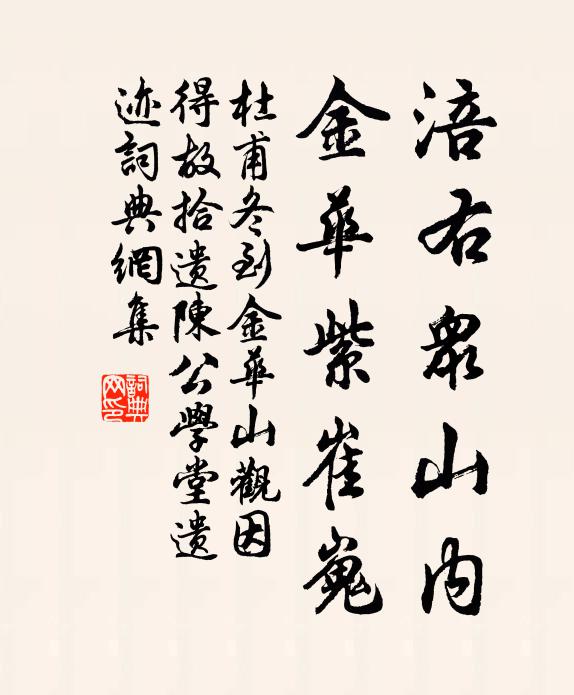 涪右衆山内
金華紫崔嵬
杜甫冬到金華山觀因
得故拾遺陳公學堂遺
迹詞典網集
詞典網印